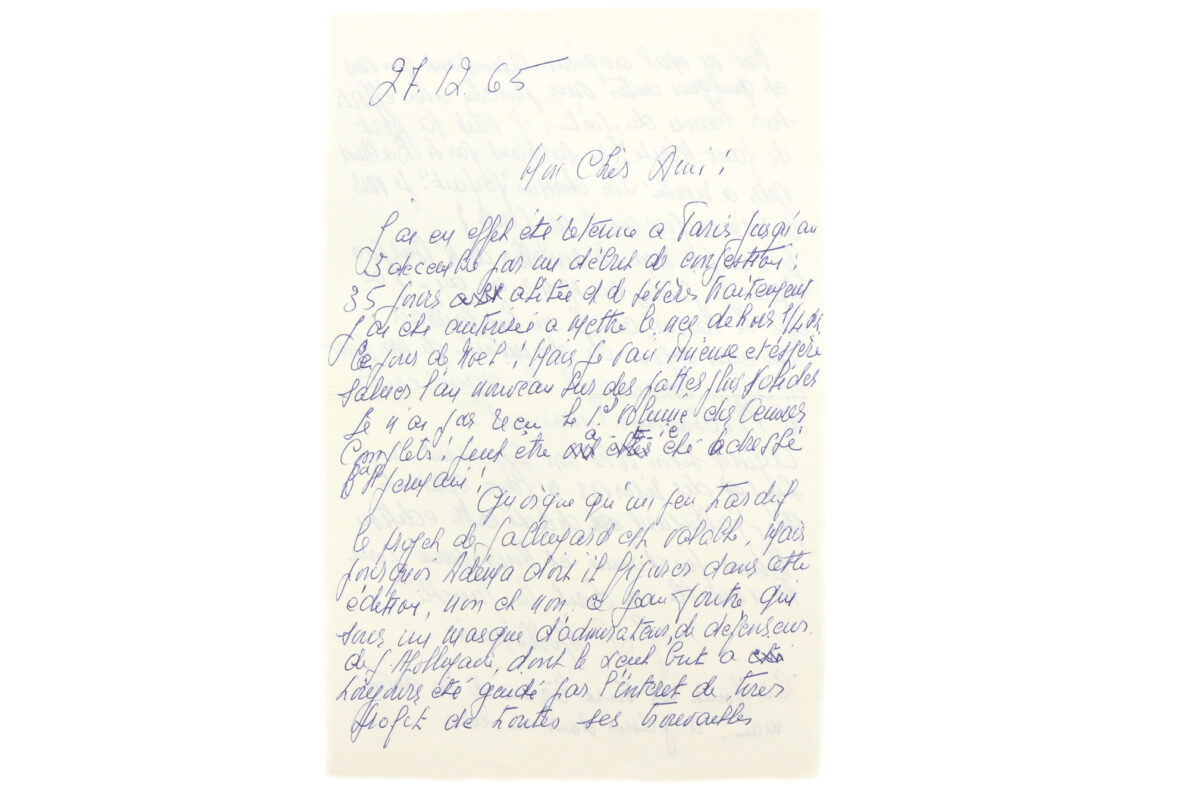 27.12.65
Mon Cher Ami !
J'ai en effet été retenue a Paris jusqu'au
décembre par un début de congestion !
35 jours alitée et de sévères traitement
J'ai été autorisée a mettre le nez dehors 1/4
le jour de Noel ! Mais je vais mieux et espère
saluer l'an nouveau sur des pattes plus solides
Je n'ai pas reçu le 1e volume des Oeuvres
Complets ! peut être a été adressé
Bd St Germain !
Quoique qu'un peu tardif
le projet de Gallimard est valable, Mais
pourquoi Adéma doit il figurer dans cette
édition, non et non. ce jean foutre qui
sous un masque d'admirateur, de défenseur
de G. Apollinaire, dont le seul but a
toujours été guidé par l'interet de tirer
profit de toutes ses trouvailles